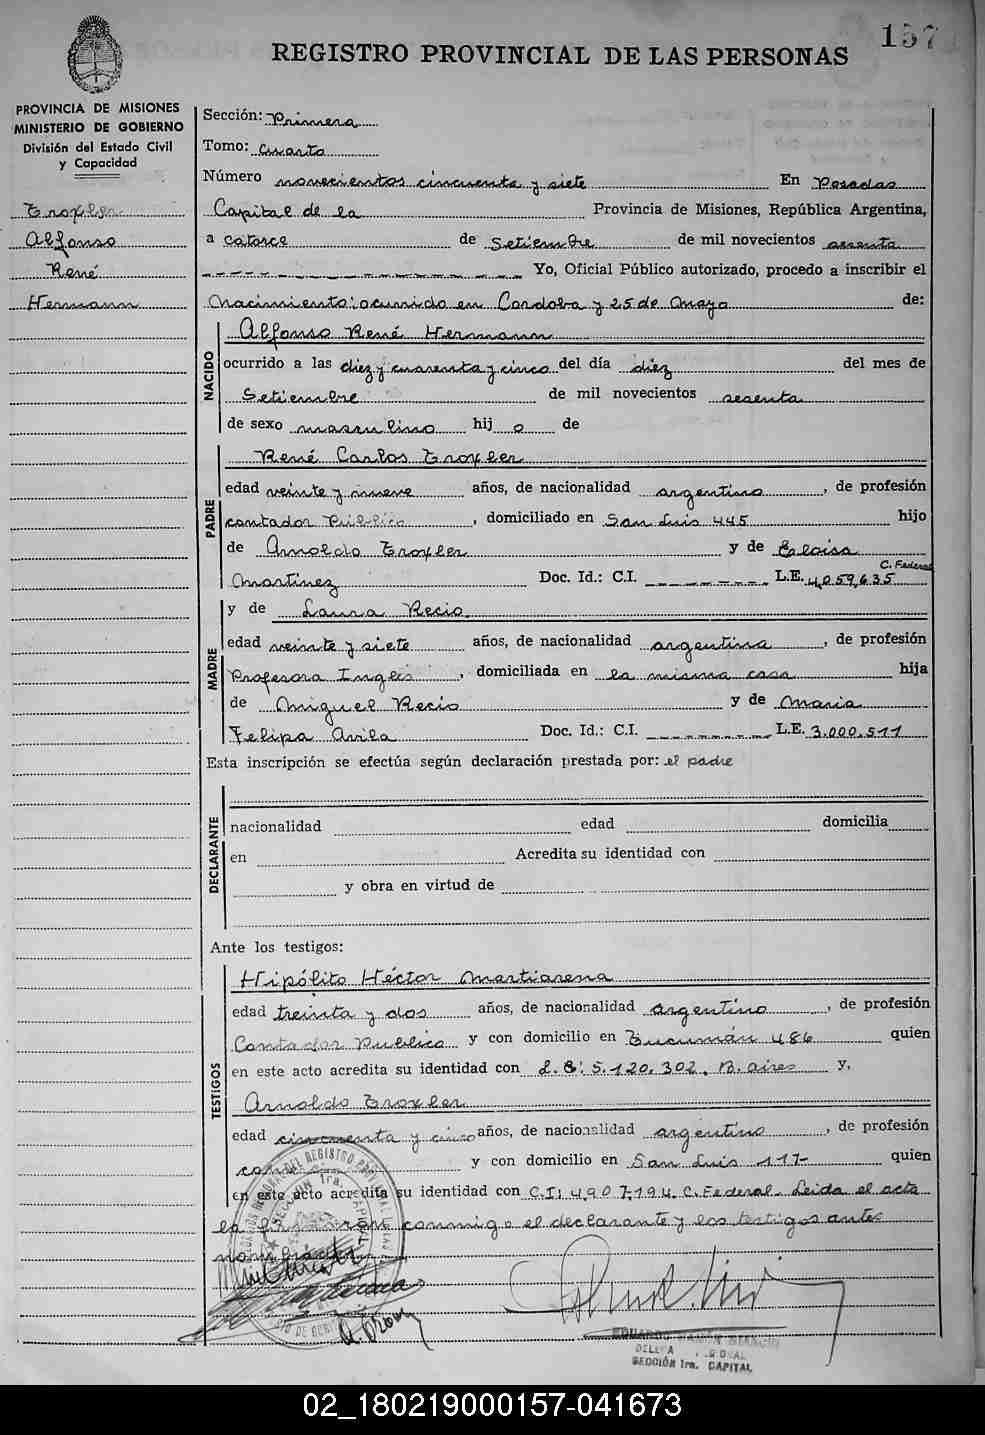 157
REGISTRO PROVINCIAL DE LAS PERSONAS
PROVINCIA DE MISIONES
MINISTERIO DE GOBIERNO
División del Estado Civil
y Capacidad
Troxler
Alfonso
René
Hermann
Sección: Primera
Tomo: Cuarto
Número novecientos cincuenta y siete En Posadas
Capital de la Provincia de Misiones, República Argentina,
a catorce de Setiembre de mil novecientos sesenta
Yo, Oficial Público autorizado, procedo a inscribir el
Nacimiento: ocurrido en Cordoba y 25 de Mayo de:
NACIDO
Alfonso René Hermann
ocurrido a las diez y cuarenta y cinco del día diez del mes de
Setiembre de mil novecientos sesenta
de sexo masculino hij o de
PADRE
René Carlos Troxler
edad veinte y nueve años, de nacionalidad argentino, de profesión
contador Público, domiciliado en San Luis 445 hijo
de Arnoldo Troxler y de Eloisa
C. Federal
Martinez Doc. Id.: C.I. L.E. 4.059.635
MADRE
y de Laura Recio.
edad veinte y siete años, de nacionalidad argentina, de profesión
Profesora Inglés, domiciliada en la misma casa hija
de Miguel Recio y de Maria
Felipa Avila Doc. Id.: C.I. L.E. 3.000.511
Esta inscripción se efectúa según declaración prestada por: el padre
DECLARANTE
nacionalidad edad domicilia
en Acredita su identidad con
y obra en virtud de
Ante los testigos:
TESTIGOS
Hipólito Héctor Martiarena
edad treinta y dos años, de nacionalidad argentino, de profesión
Contador Publico y con domicilio en Tucumán 486 quien
en este acto acredita su identidad con L.E: 5.120.302. B. aires y,
Arnoldo Troxler
edad cincuenta y cinco años, de nacionalidad argentino, de profesión
y con domicilio en San Luis 117- quien
en este acto acredita su identidad con C.I: 4.907.194. C. Federal. Leida el acta
la firmaran conmigo el declarante y los testigos antes
nombrados
SECCIÓN 1ra. CAPITAL
02_180219000157-041673